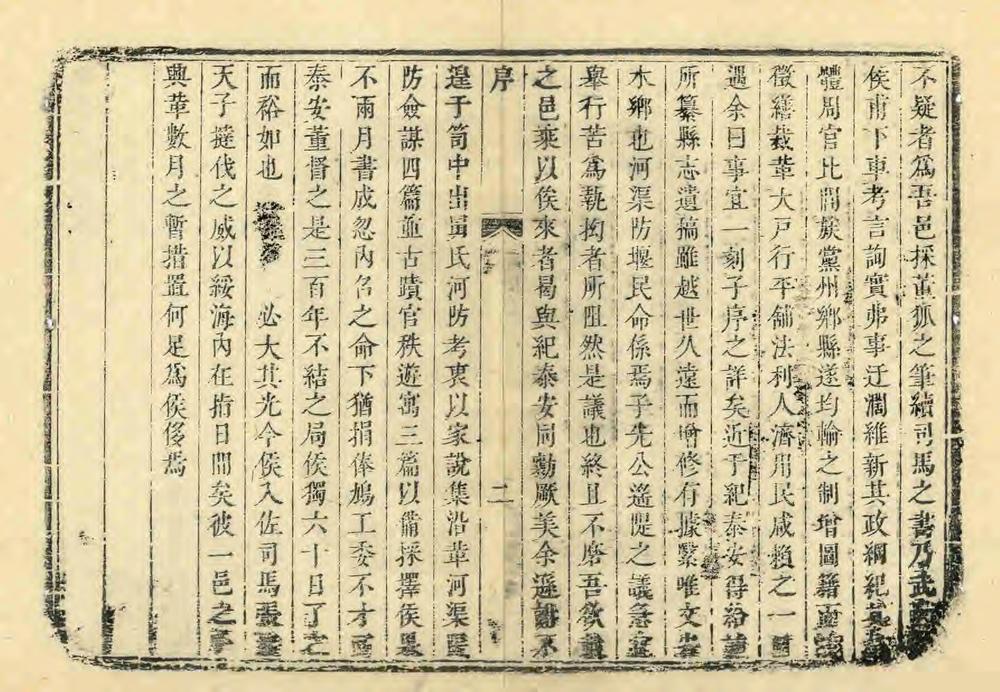 不疑者爲吾邑採董狐之筆續司馬之書乃武
侯甫下車考言詢實弗事迂濶維新其政綱紀
體周官比閭族黨州鄉縣遂均輸之制增圖籍
徵繕裁革大戸行平舖法利人濟用民咸賴之一
遇余曰事宜一刻子序之詳矣近于紀泰安得
所纂縣志遺搞雖越世久遠而增修有據繄唯文
水鄉也河渠防堰民命係焉予先公遙隄之議
舉行苦爲執拘者所阻然是議也終且不磨吾
之邑乘以俟來者曷與紀泰安同勷厥美余遜
序
二
遑于笥中出 氏河防考衷以家說集沿革河渠
防僉謀四篇並古蹟官秩遊寓三篇以備採擇侯
不兩月書成忽內召之命下猶捐俸鳩工委不才
泰安董督之是三百年不結之局侯獨六十日了之
而裕如也
必大其光今侯入佐司馬
天子撻伐之威以綏海內在指日間矣彼一邑之
興革數月之暫措置何足爲侯侈焉